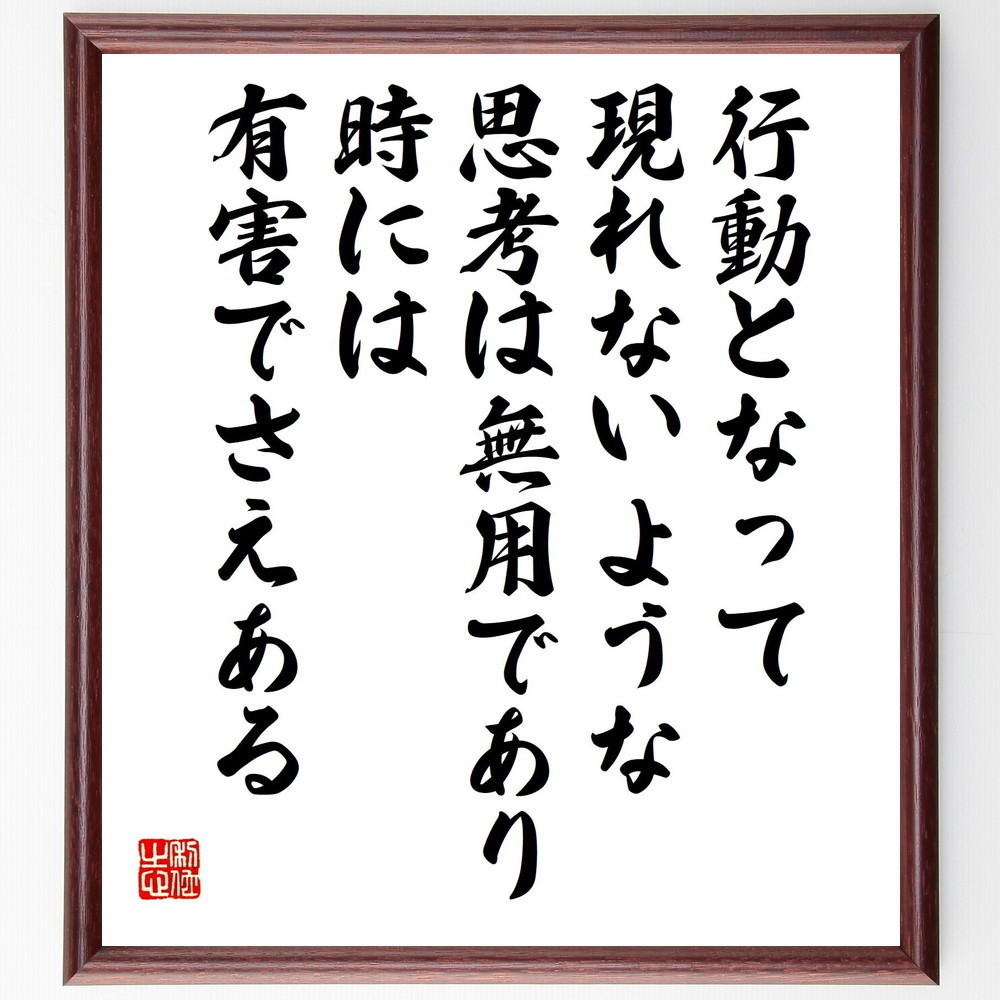 行動となって
現れないような
思考は無用であり
時には
有害でさえある